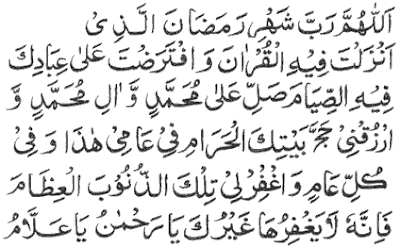 اَللّٰهُمَّ رَبَّ شَهْرِ رَمَضَانَ الَّذِىْ
اَنْزَلْتَ فِيْهِ الْقُرْاٰنَ وَ افْتَرَضْتَ عَلٰى عِبَادِكَ
فِيْهِ الصِّيَامَ صَلِّ عَلٰى مُحَمَّدٍ وَّ اٰلِ مُحَمَّدٍ وَّ
ارْزُقْنِىْ حَجَّ بَيْتِكَ الْحَرَامِ فِىْ عَامِىْ هٰذَا وَ فِىْ
كُلِّ عَامٍ وَ اغْفِرْ لِىْ تِلْكَ الذُّنُوْبَ الْعِظَامَ
فَاِنَّهٗ لَا يَغْفِرُهَا غَيْرُكَ يَا رَحْمٰنُ يَا عَلَّامُ